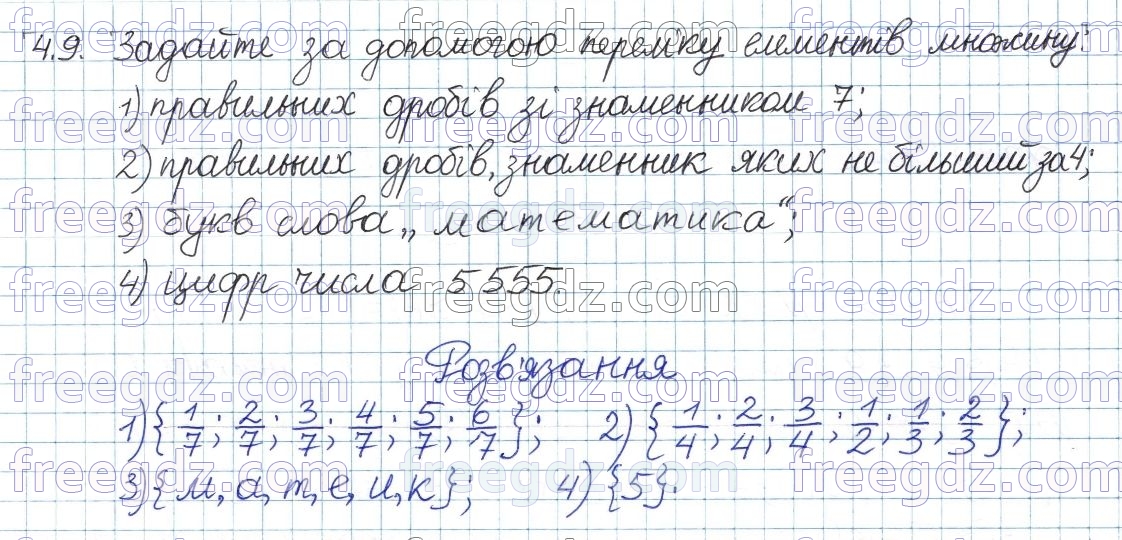 4.9. Задайте за допомогою переліку елементів множину:
1) правильних дробів зі знаменником 7;
2) правильних дробів, знаменник яких не більший за 4;
3) букв слова „математика“;
4) цифр числа 5555.
Розв'язання
1) {1/7; 2/7; 3/7; 4/7; 5/7; 6/7}; 2) {1/4; 2/4; 3/4; 1/2; 1/3; 2/3};
3) {м, а, т, е, и, к}; 4) {5}.